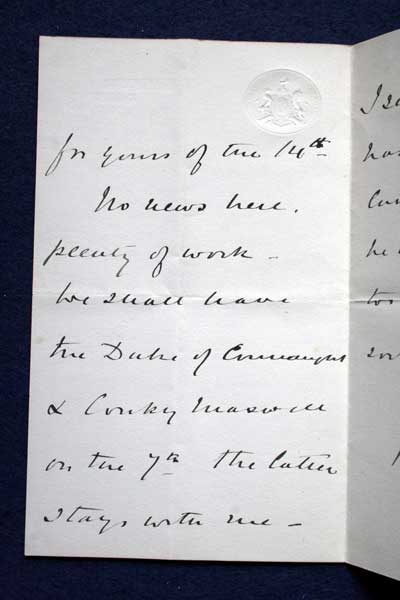 for yours of the 14th
No news here.
plenty of work –
We shall have
the Duke of Connaught
& Conky Maxwell
on the 7th the latter
stays with me –